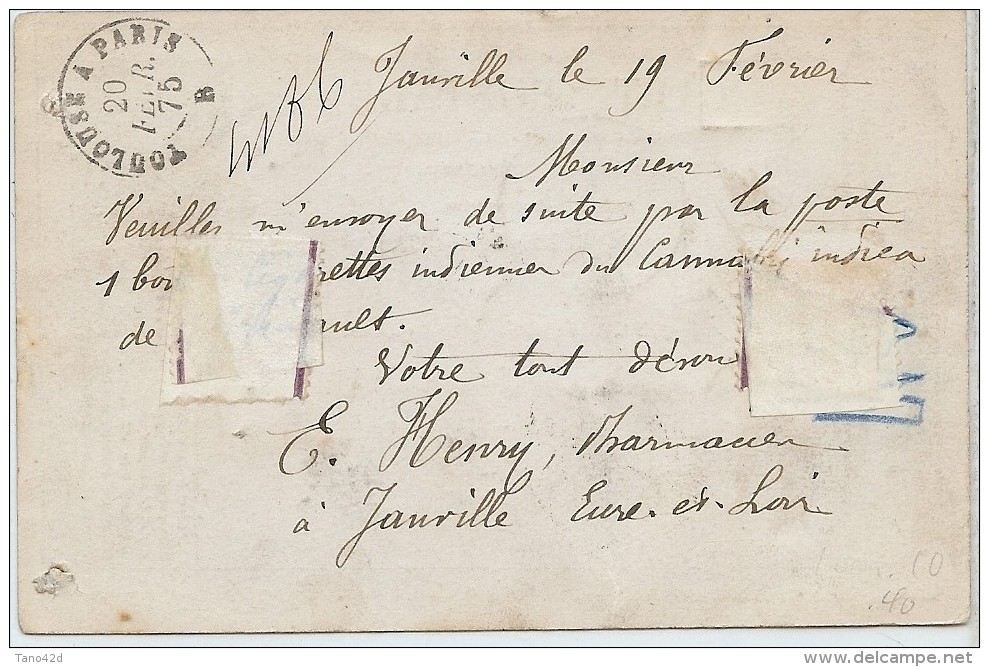 TOULOUSE A PARIS
20
FEVR.
75
B
Janville le 19 Février
Monsieur
Veuillez m'envoyer de suite par la poste
1 boi rettes indiennes du Cannabis indica
de ault.
Votre tout dévou
E. Henry, Pharmacien
à Janville Eure-et-Loir
10
40
Tano42d
delcampe.net